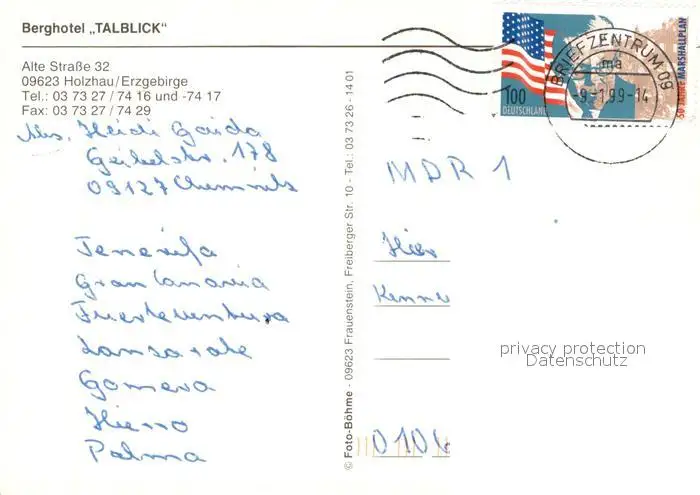 Berghotel „TALBLICK"
Alte Straße 32
09623 Holzhau/Erzgebirge
Tel.: 03 73 27 / 74 16 und -74 17
Fax: 03 73 27 / 74 29
Abs. Heidi Gaida
Geibelstr. 178
09127 Chemnitz
Tenerifa
Gran Canaria
Fuerteventura
Lansarote
Gomera
Hierro
Palma
© Foto-Böhme - 09623 Frauenstein, Freiberger Str. 10 - Tel.: 03 73 26 - 14 01
100
DEUTSCHLAND
50 JAHRE MARSHALLPLAN
BRIEFZENTRUM 09
ma
-9.-1.99-14
MDR 1
Hier
Kenne
privacy protection
Datenschutz